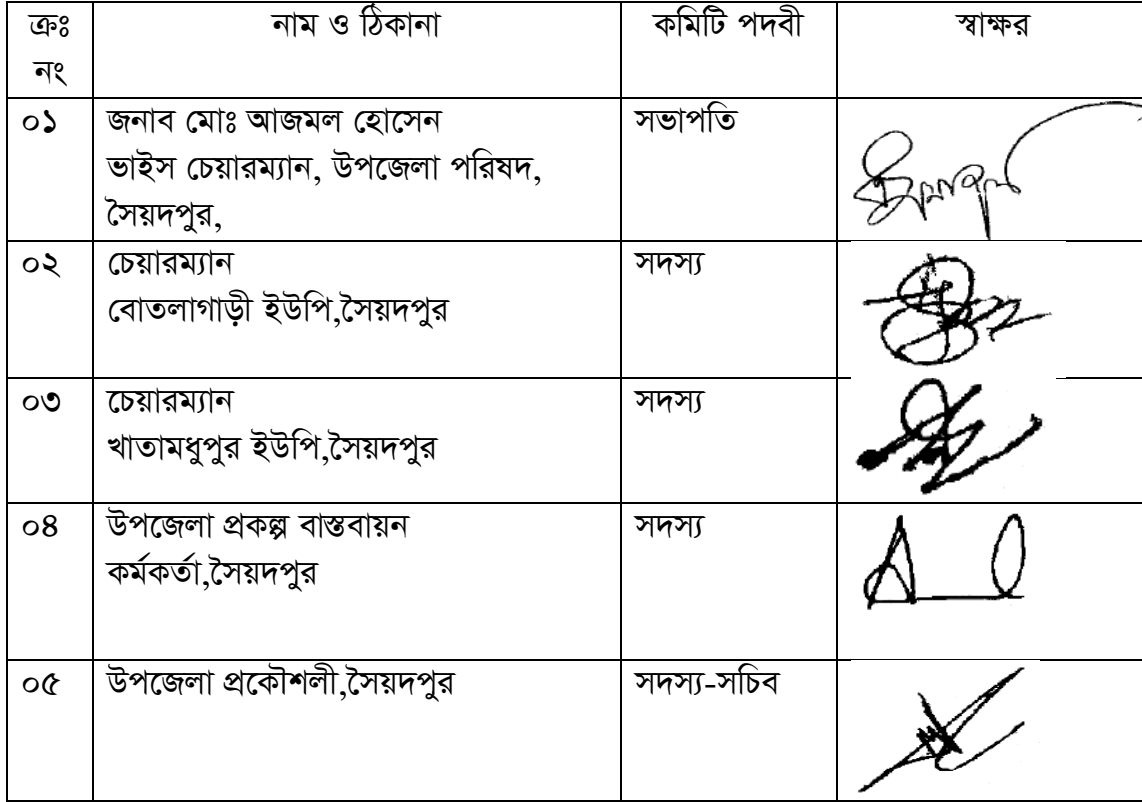 ক্রঃ নং নাম ও ঠিকানা কমিটি পদবী স্বাক্ষর
০১ জনাব মোঃ আজমল হোসেন সভাপতি
ভাইস চেয়ারম্যান, উপজেলা পরিষদ,
সৈয়দপুর,
০২ চেয়ারম্যান সদস্য
বোতলাগাড়ী ইউপি,সৈয়দপুর
০৩ চেয়ারম্যান সদস্য
খাতামধুপুর ইউপি,সৈয়দপুর
০৪ উপজেলা প্রকল্প বাস্তবায়ন সদস্য
কর্মকর্তা,সৈয়দপুর
০৫ উপজেলা প্রকৌশলী,সৈয়দপুর সদস্য-সচিব